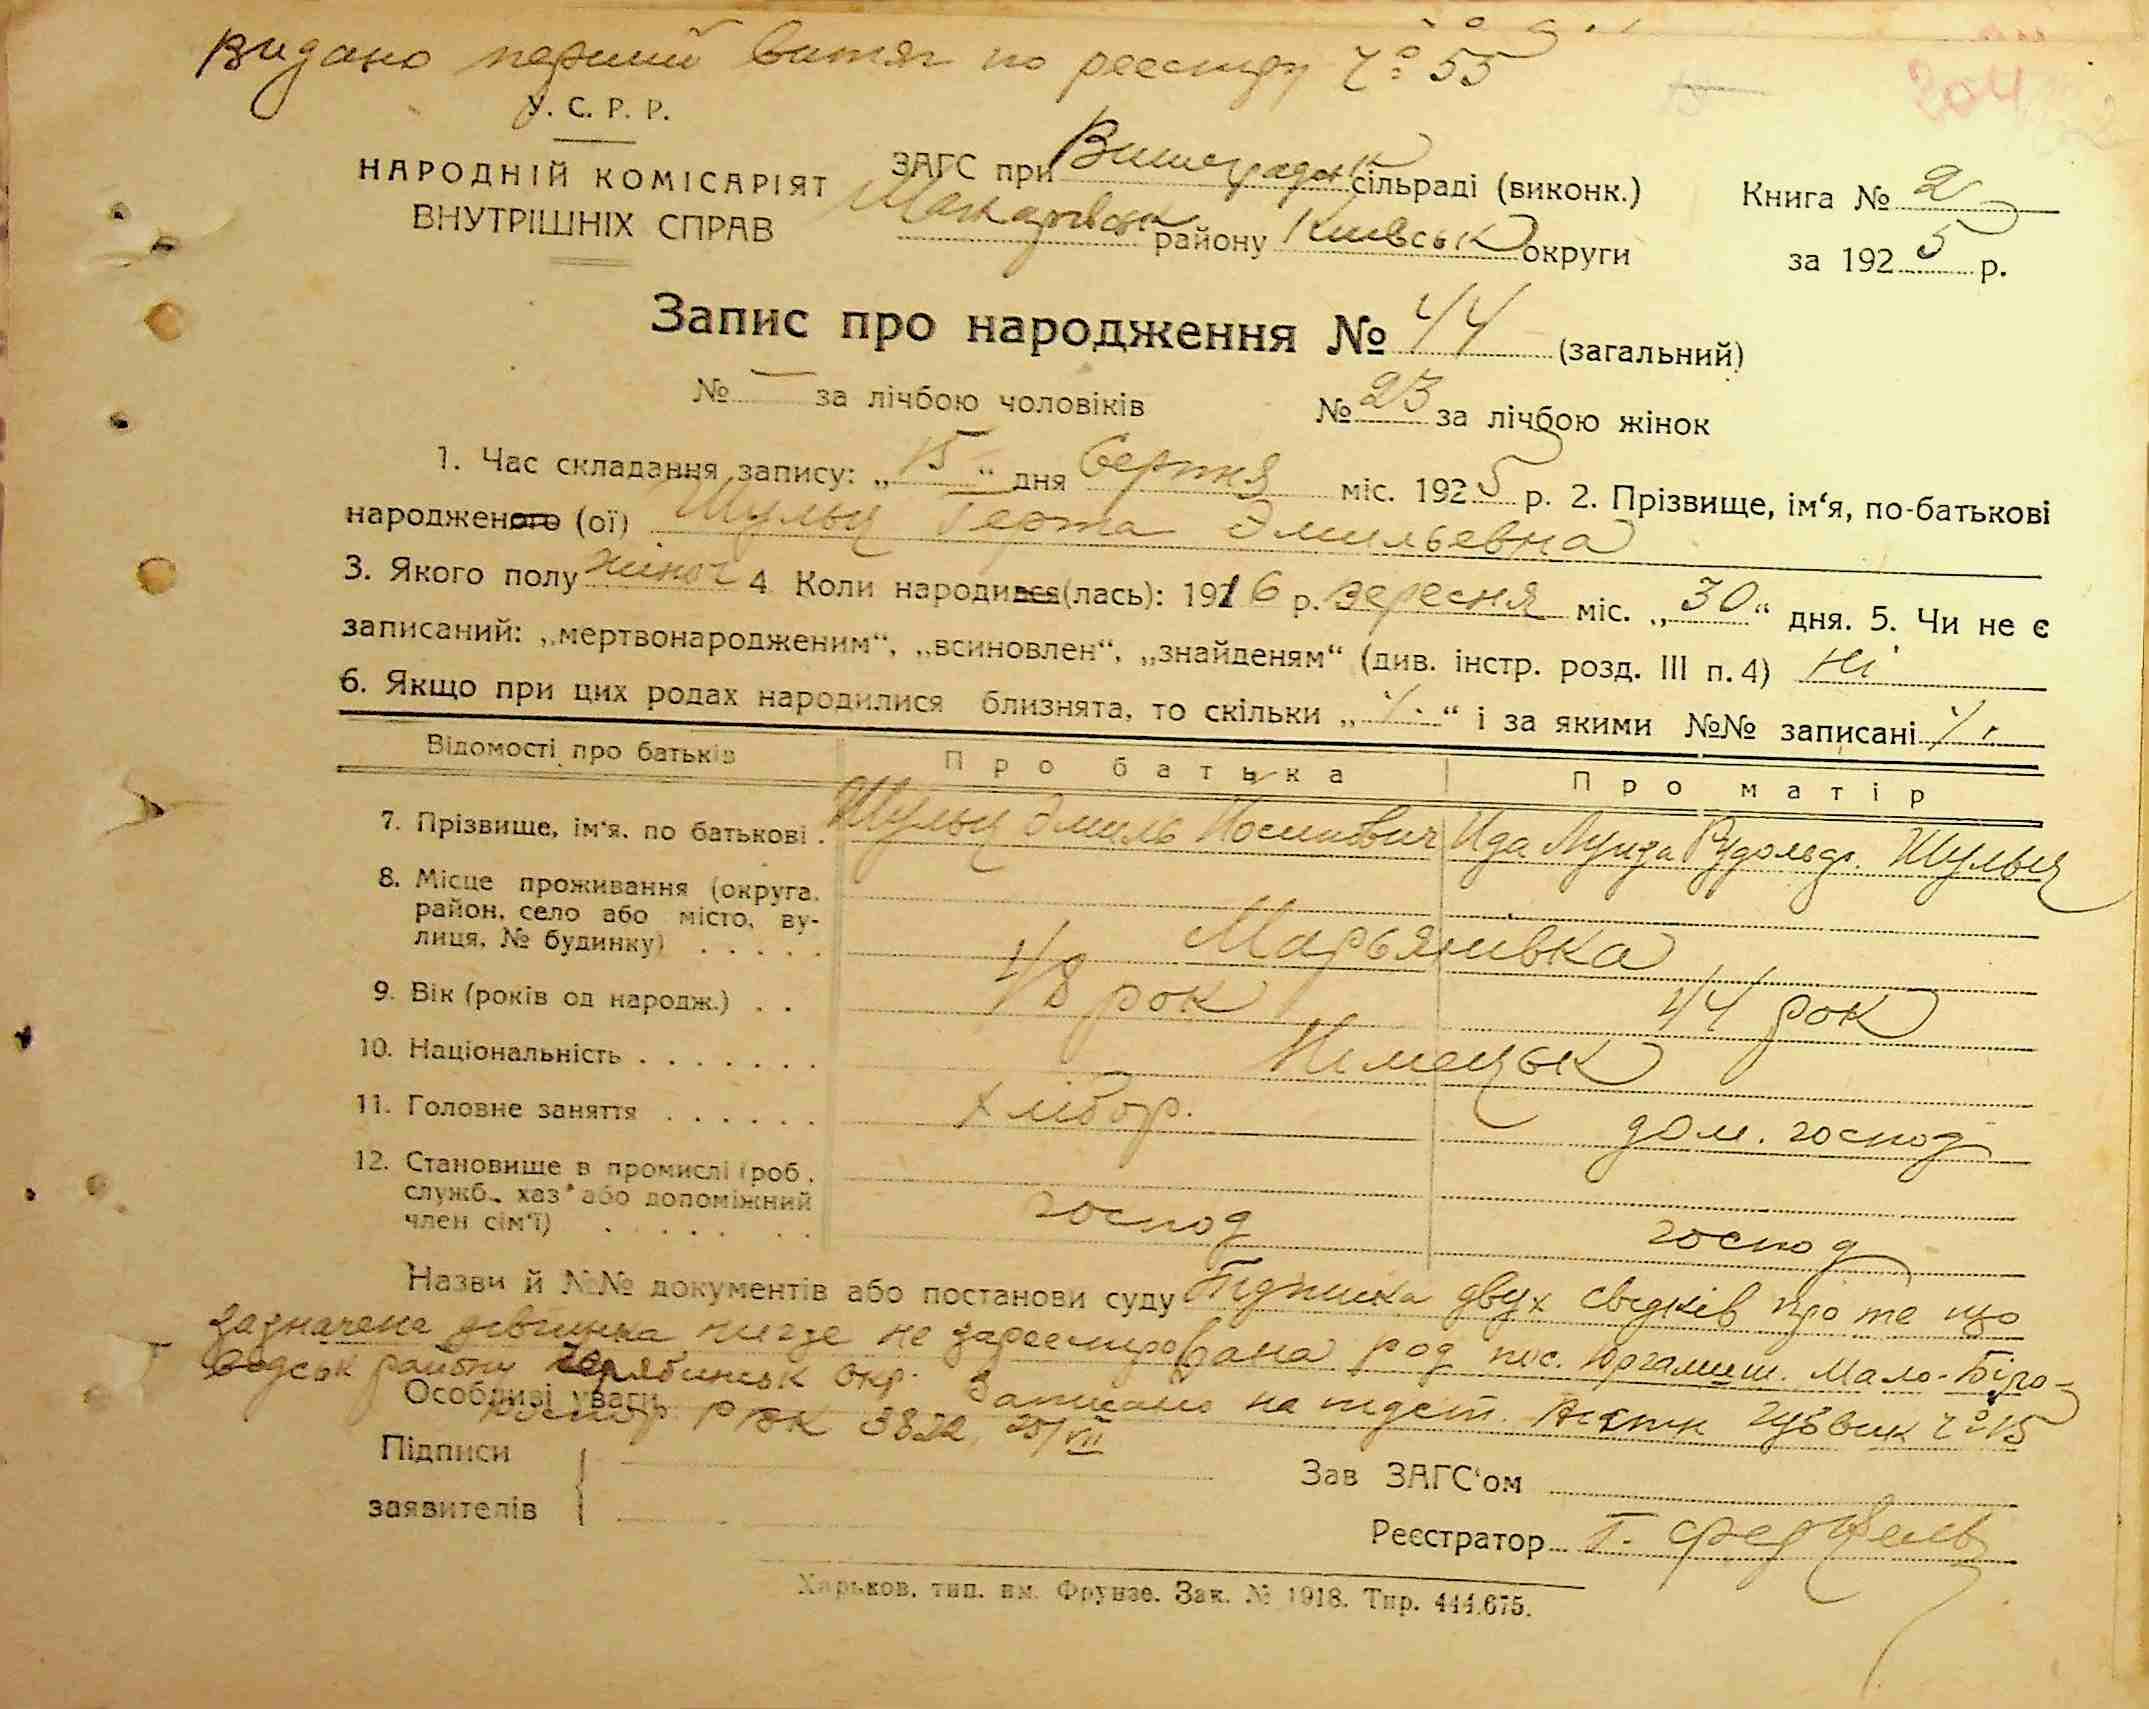 Видано перший витяг по реєстру Ч° 55
204
У. С. Р. Р.
НАРОДНІЙ КОМІСАРІЯТ
ВНУТРІШНІХ СПРАВ
ЗАГС при Виноградськ сільраді (виконк.)
Макарівськ району Київськ округи
Книга № 2
за 1925 р.
Запис про народження № 44 (загальний)
№ — за лічбою чоловіків № 23 за лічбою жінок
1. Час складання запису: „15“ дня Серпня міс. 1925 р. 2. Прізвище, ім‘я, по-батькові
народженого (ої) Шульц Герта Эмильевна
3. Якого полу жіноч 4 Коли народився(лась): 1916 р. вересня міс. „30“ дня. 5. Чи не є
записаний: „мертвонародженим“, „всиновлен“, „знайденям“ (див. інстр. розд. III п. 4) Ні
6. Якщо при цих родах народилися близнята, то скільки „ “ і за якими №№ записані
Відомості про батьків Про батька Про матір
7. Прізвище, ім‘я, по батькові . Шульц Эмиль Иосипович Ида Луиза Рудольф. Шульц
8. Місце проживання (округа,
район, село або місто, ву-
лиця, № будинку) . . . . . Марьянивка
9. Вік (років од народж.) . . 48 рок 44 рок
10. Національність . . . . . . . Німецьк
11. Головне заняття . . . . . . Хлібор. дом. господ
12. Становище в промислі (роб.,
служб., хаз. або допоміжний
член сім‘ї) . . . . . . господ господ
Назви й №№ документів або постанови суду Підписка двух свідків про те що
зазначена дівчинка нигде не зареестрирована род пос. Юргамиш. Мало-Біло-
водськ району Челябинськ окр. Записано на підст.
Особливі уваги РВК 3822, 25/VII
Підписи
заявителів
Зав ЗАГС‘ом
Реєстратор Г.
Харьков, тип. им. Фрунзе. Зак. № 1918. Тир. 444.675.